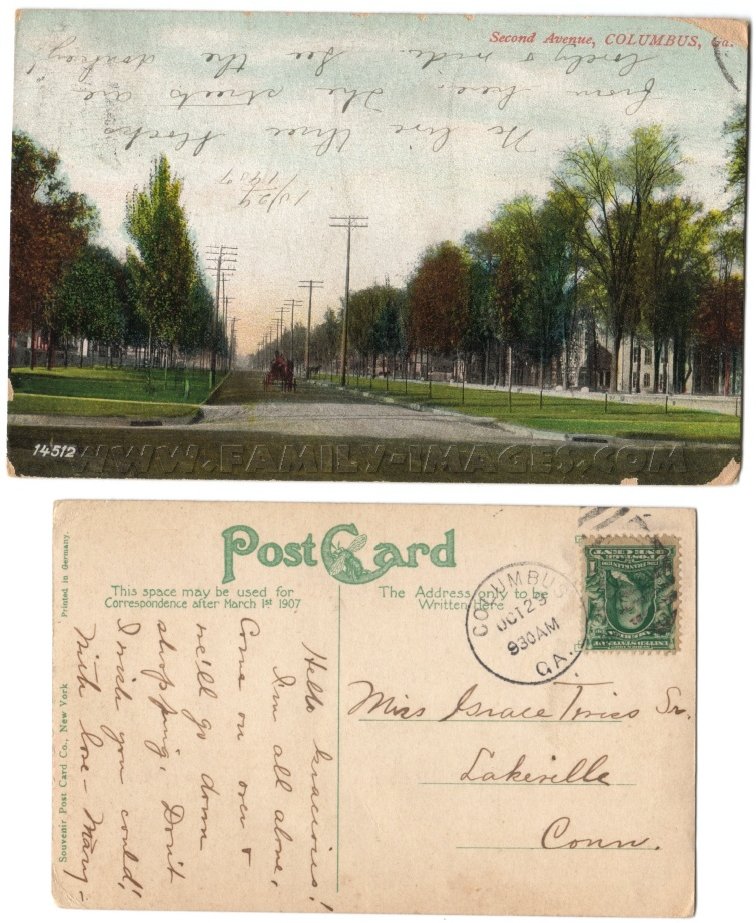 Second Avenue, COLUMBUS, Ga.
10/29
1907
We live three blocks
from here. The streets are
lovely & wide. See the donkey!
14512
WWW.FAMILY-IMAGES.COM
Post Card
This space may be used for
Correspondence after March 1st 1907
The Address only to be
Written Here
COLUMBUS
OCT 29
930AM
GA.
Printed in Germany.
Souvenir Post Card Co., New York
Hello Gracious!
I'm all alone.
Come on over &
we'll go down
shopping. Don't
I wish you could!
With love - Mary -
Miss Grace Sr.
Lakeville
Conn.